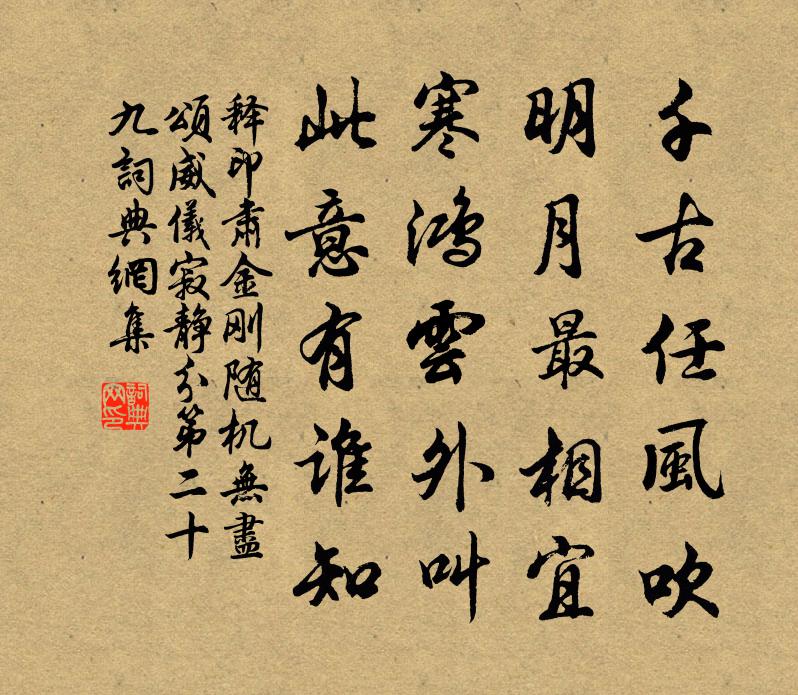 千古任風吹
明月最相宜
寒鴻雲外叫
此意有誰知
释印肃金刚随机無盡
頌威儀寂静分第二十
九詞典網集
詞典
网印